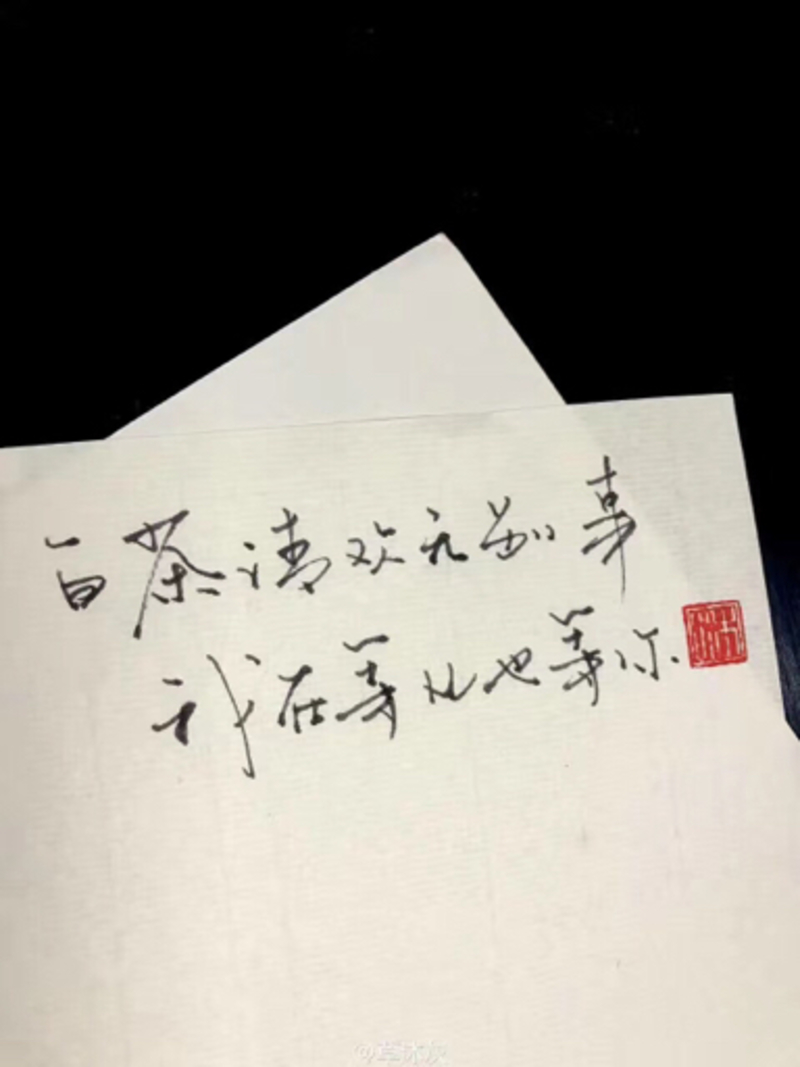 白茶清欢无别事
我在等风也等你.
@草木灰